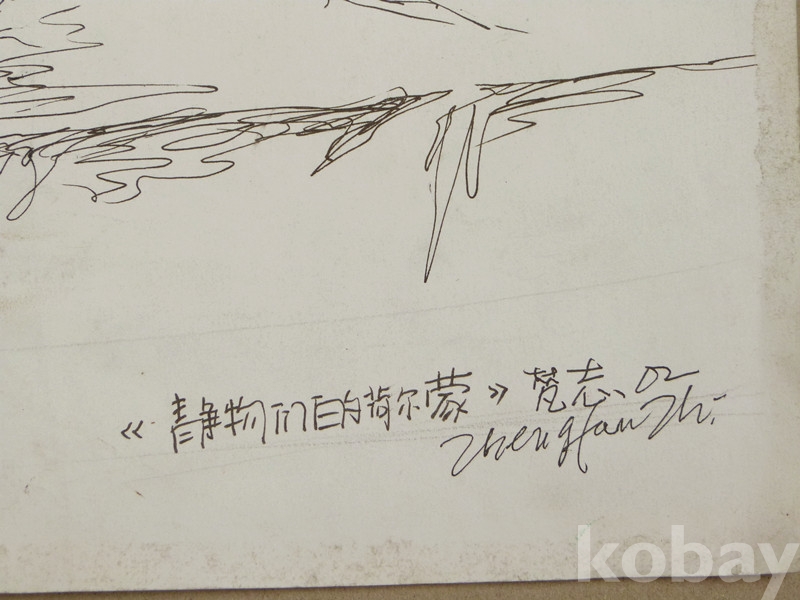 《静物们的荷尔蒙》梵志、02
Zheng Fan Zhi
kobay